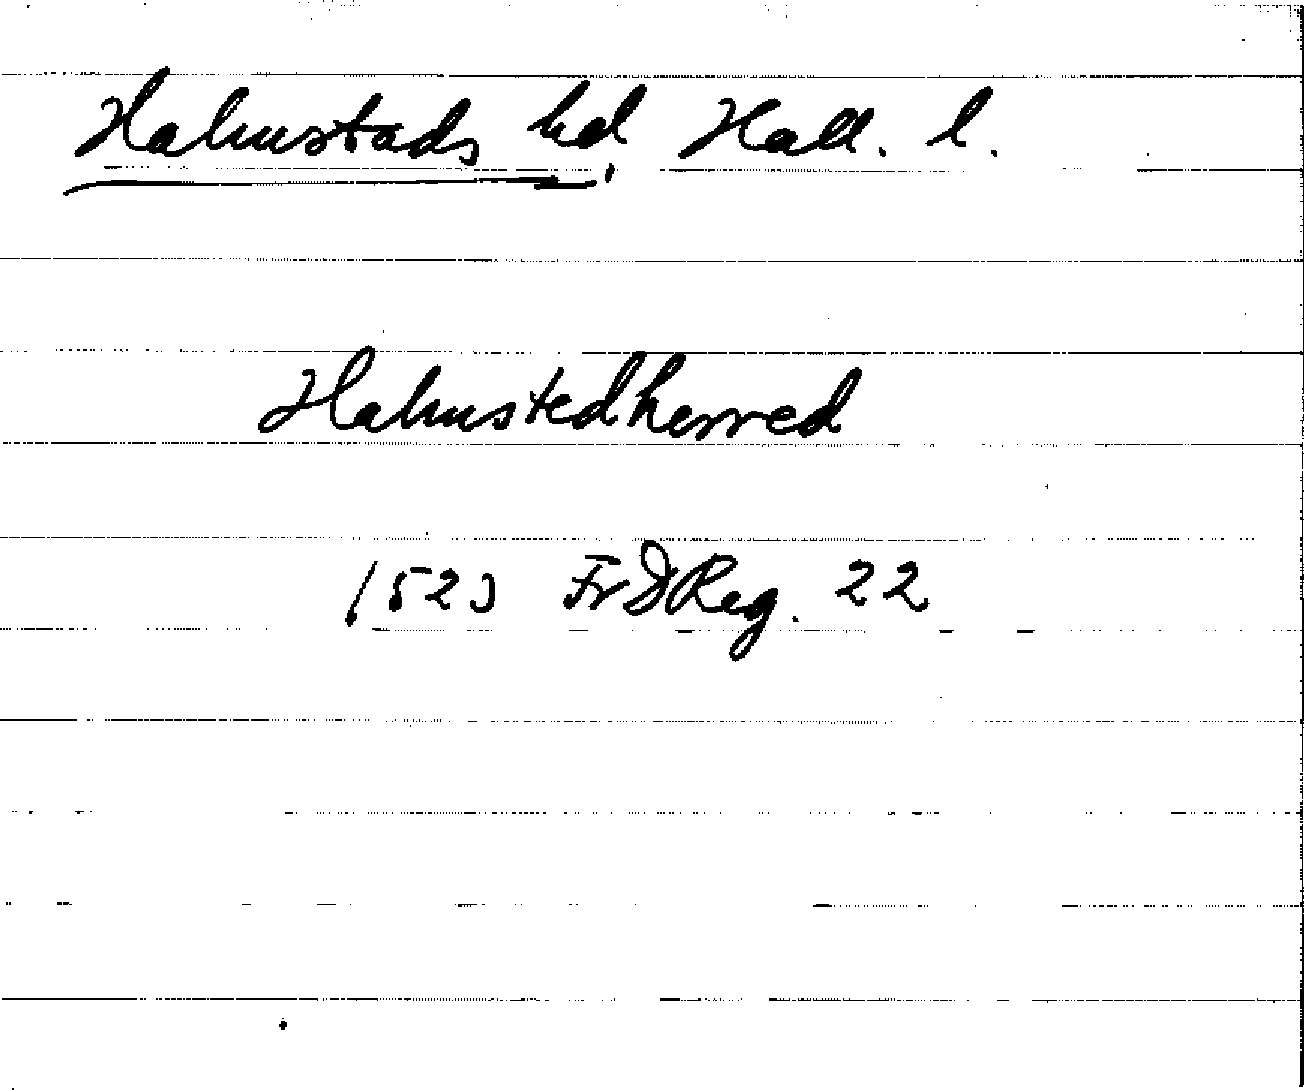 Halmstads hd, Hall. l.
Halmstedherred
1523 FrDReg. 22